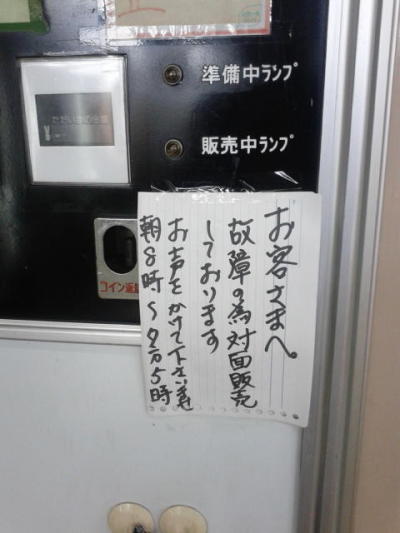 準備中ランプ
販売中ランプ
ただいまの金額
コイン返却
お客さまへ。
故障の為対面販売
しております
お声をかけて下さいませ
朝8時〜夕方5時